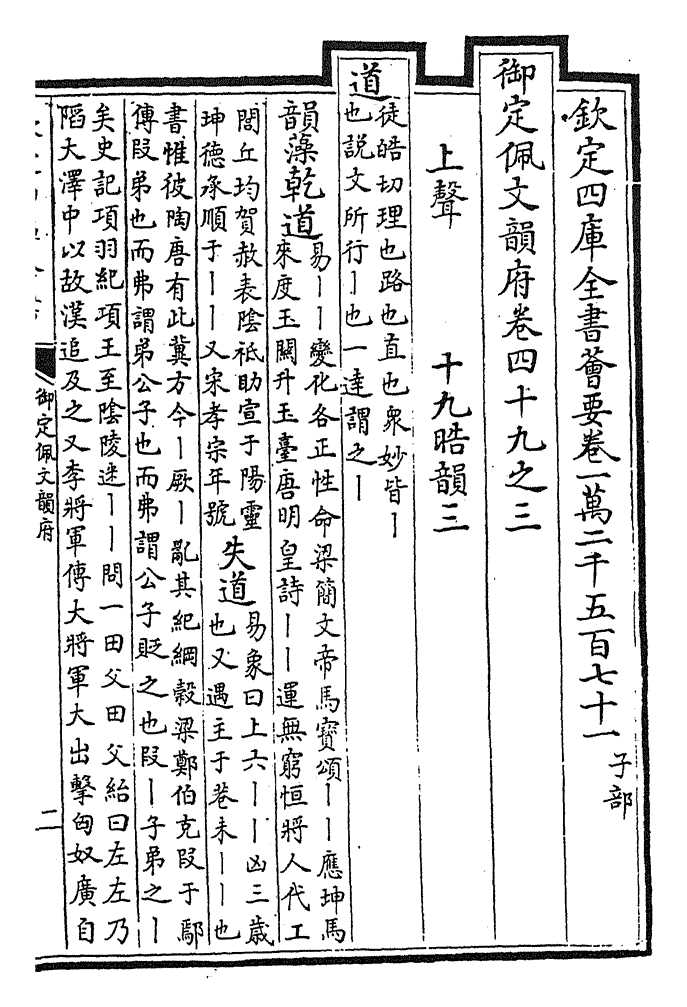 欽定四庫全書薈要卷一萬二千五百七十一 子部
御定佩文韻府卷四十九之三
上聲 十九晧韻三
道
徒皓切理也路也直也衆妙皆丨
也説文所行丨也一達謂之丨
韻藻乾道
易丨丨變化各正性命梁簡文帝馬寶頌丨丨應坤馬
來度玉關升玉臺唐明皇詩丨丨運無窮恒將人代工
閭丘均賀赦表陰祇助宣于陽靈
坤德承順于丨丨又宋孝宗年號
失道
易象曰上六丨丨凶三歳
也又遇主于巷未丨丨也
書惟彼陶唐有此冀方今丨厥丨亂其紀綱榖梁鄭伯克段于鄢
傳段弟也而弗謂弟公子也而弗謂公子貶之也段丨子弟之丨
矣史記項羽紀項王至陰陵迷丨丨問一田父田父紿曰左左乃
䧟大澤中以故漢追及之又李將軍傳大將軍大出擊匈奴廣自
御定佩文韻府
二